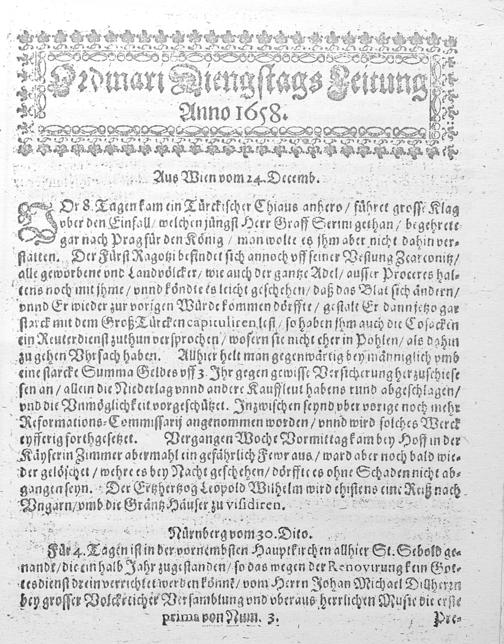 Ordinari Diengstags Zeitung
Anno 1658.
Aus Wien vom 24. Decemb.
VOr 8. Tagen kam ein Türckischer Chiaus anhero / führet grosse Klag
über den Einfall / welchen jüngst Herr Graff Serini gethan / begehrete
gar nach Prag für den König / man wolte es jhm aber nicht dahin ver-
statten. Der Fürst Ragotzi befindet sich annoch vff seiner Vestung
alle geworbene vnd Landvölcker / wie auch der gantze Adel / ausser Proceres hal-
tens noch mit jhme / vnnd köndte es leicht geschehen / daß das Blat sich ändern /
vnnd Er wieder zur vorigen Würde kommen dörffte / gestalt Er dann jetzo gar
starck mit dem Groß Türcken capituliren lest / so haben jhm auch die Cosacken
ein Reuterdienst zuthun versprochen / wofern sie nicht eher in Pohlen / als dahin
zu gehen Vrsach haben. Allhier helt man gegenwärtig bey männiglich vmb
eine starcke Summa Geldes vff 3. Jhr gegen gewisse Versicherung herzuschiese
sen an / allein die Niederlag vnnd andere Kauffleut habens rund abgeschlagen /
vnd die Vnmöglichkeit vorgeschützet. Inzwischen seynd vber vorige noch mehr
Reformations-Commissarij angenommen worden / vnnd wird solches Werck
eyfferig forthgesetzet. Vergangen Woche Vormittag kam bey Hoff in der
Käyserin Zimmer abermahl ein gefährlich Fewr aus / ward aber noch bald wie-
der gelöschet / wehre es bey Nacht geschehen / dörffte es ohne Schaden nicht ab-
gangen seyn. Der Ertzhertzog Leopold Wilhelm wird ehistens eine Reiß nach
Vngarn / vmb die Gräntz Häuser zu visidiren.
Nürnberg vom 30. Dito.
Für 4. Tagen ist in der vornembsten Hauptkirchen allhier St. Sebold ge-
nandt / die ein halb Jahr zugestanden / so das wegen der Renovirung kein Got-
tesdienst drein verrichtet werden könnt / vom Herrn Johan Michael Dillherrn
bey grosser Volckreicher Versamblung vnd überaus herrlichen Music die erste
prima von Num. 3. Pre-